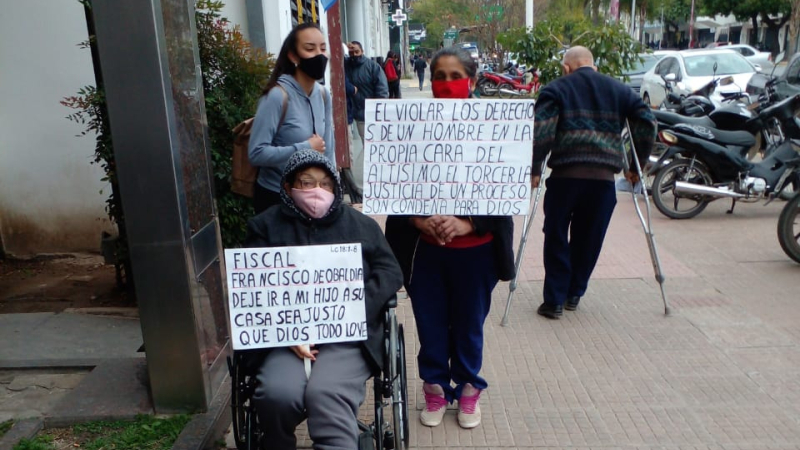 EL VIOLAR LOS DERECHO
S DE UN HOMBRE EN LA
PROPIA CARA DEL
ALTISIMO, EL TORCER LA
JUSTICIA DE UN PROCESO,
SON CONDENA PARA DIOS
LC18:7-8
FISCAL
FRANCISCO DE OBALDIA
DEJE IR A MI HIJO A SU
CASA SEA JUSTO
QUE DIOS TODO LO VE